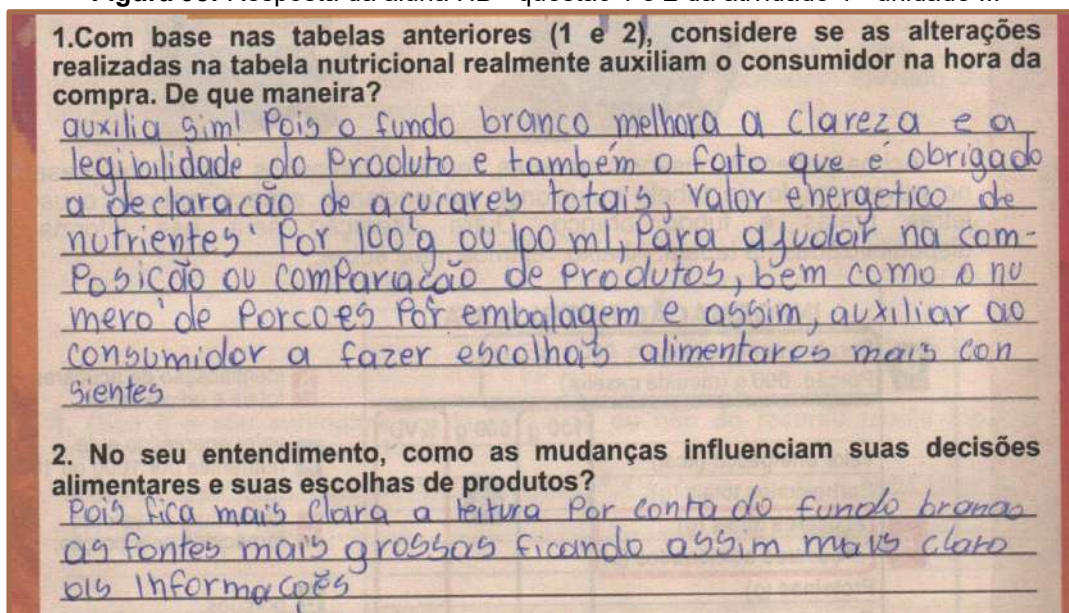 1.Com base nas tabelas anteriores (1 e 2), considere se as alterações
realizadas na tabela nutricional realmente auxiliam o consumidor na hora da
compra. De que maneira?
auxilia sim! Pois o fundo branco melhora a clareza e a
legibilidade do Produto e também o fato que é obrigado
a declaração de açucares totais, valor energético de
nutrientes Por 100 g ou 100 ml, Para ajudar na com-
Posição ou comparação de Produtos, bem como o nu
mero de Porcoes Por embalagem e assim, auxiliar ao
consumidor a fazer escolhas alimentares mais con
sientes
2. No seu entendimento, como as mudanças influenciam suas decisões
alimentares e suas escolhas de produtos?
Pois fica mais clara a leitura Por conta do fundo branco
as fontes mais grossas ficando assim mais claro
as informações